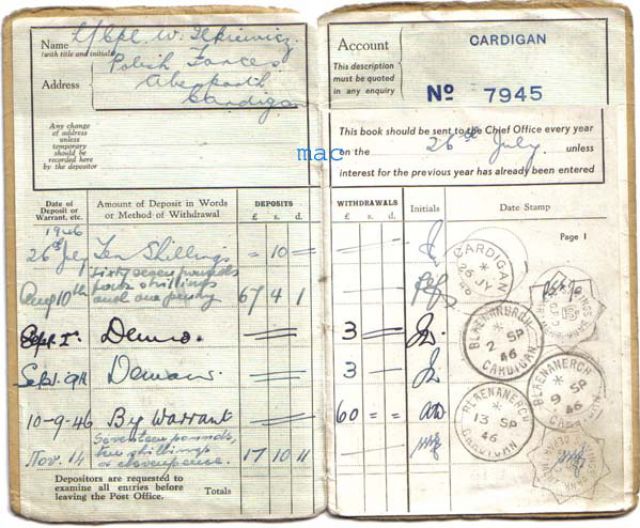 Name L/Cpl. W. Ilkiewicz.
(with title and initials)
Polish Forces
Address Aberporth
Cardigan
Any change
of address
unless
temporary
should be
recorded here
by the depositor
Date of
Deposit or
Warrant, etc.
Amount of Deposit in Words
or Method of Withdrawal
DEPOSITS
£ s. d.
1946
26th July Ten Shillings = 10 =
Aug 10th Sixty seven pounds
four shillings
and one penny 67 4 1
Sept. 2.
Sept. 9th Demand.
10-9-46 By Warrant
Nov. 14 Seventeen pounds,
ten shillings
& eleven pence. 17 10 11
Depositors are requested to
examine all entries before
leaving the Post Office.
Totals
Account CARDIGAN
This description
must be quoted
in any enquiry
No 7945
This book should be sent to the Chief Office every year
on the 26th July. unless
interest for the previous year has already been entered
mac
WITHDRAWALS
£ s. d.
Initials
Date Stamp
Page 1
3
3
60 = =
CARDIGAN
26 JY
BLAENANERCH
2 SP
46
CARDIGAN
BLAENANERCH
9 SP
46
CARDIGAN
BLAENANERCH
13 SP
46
CARDIGAN